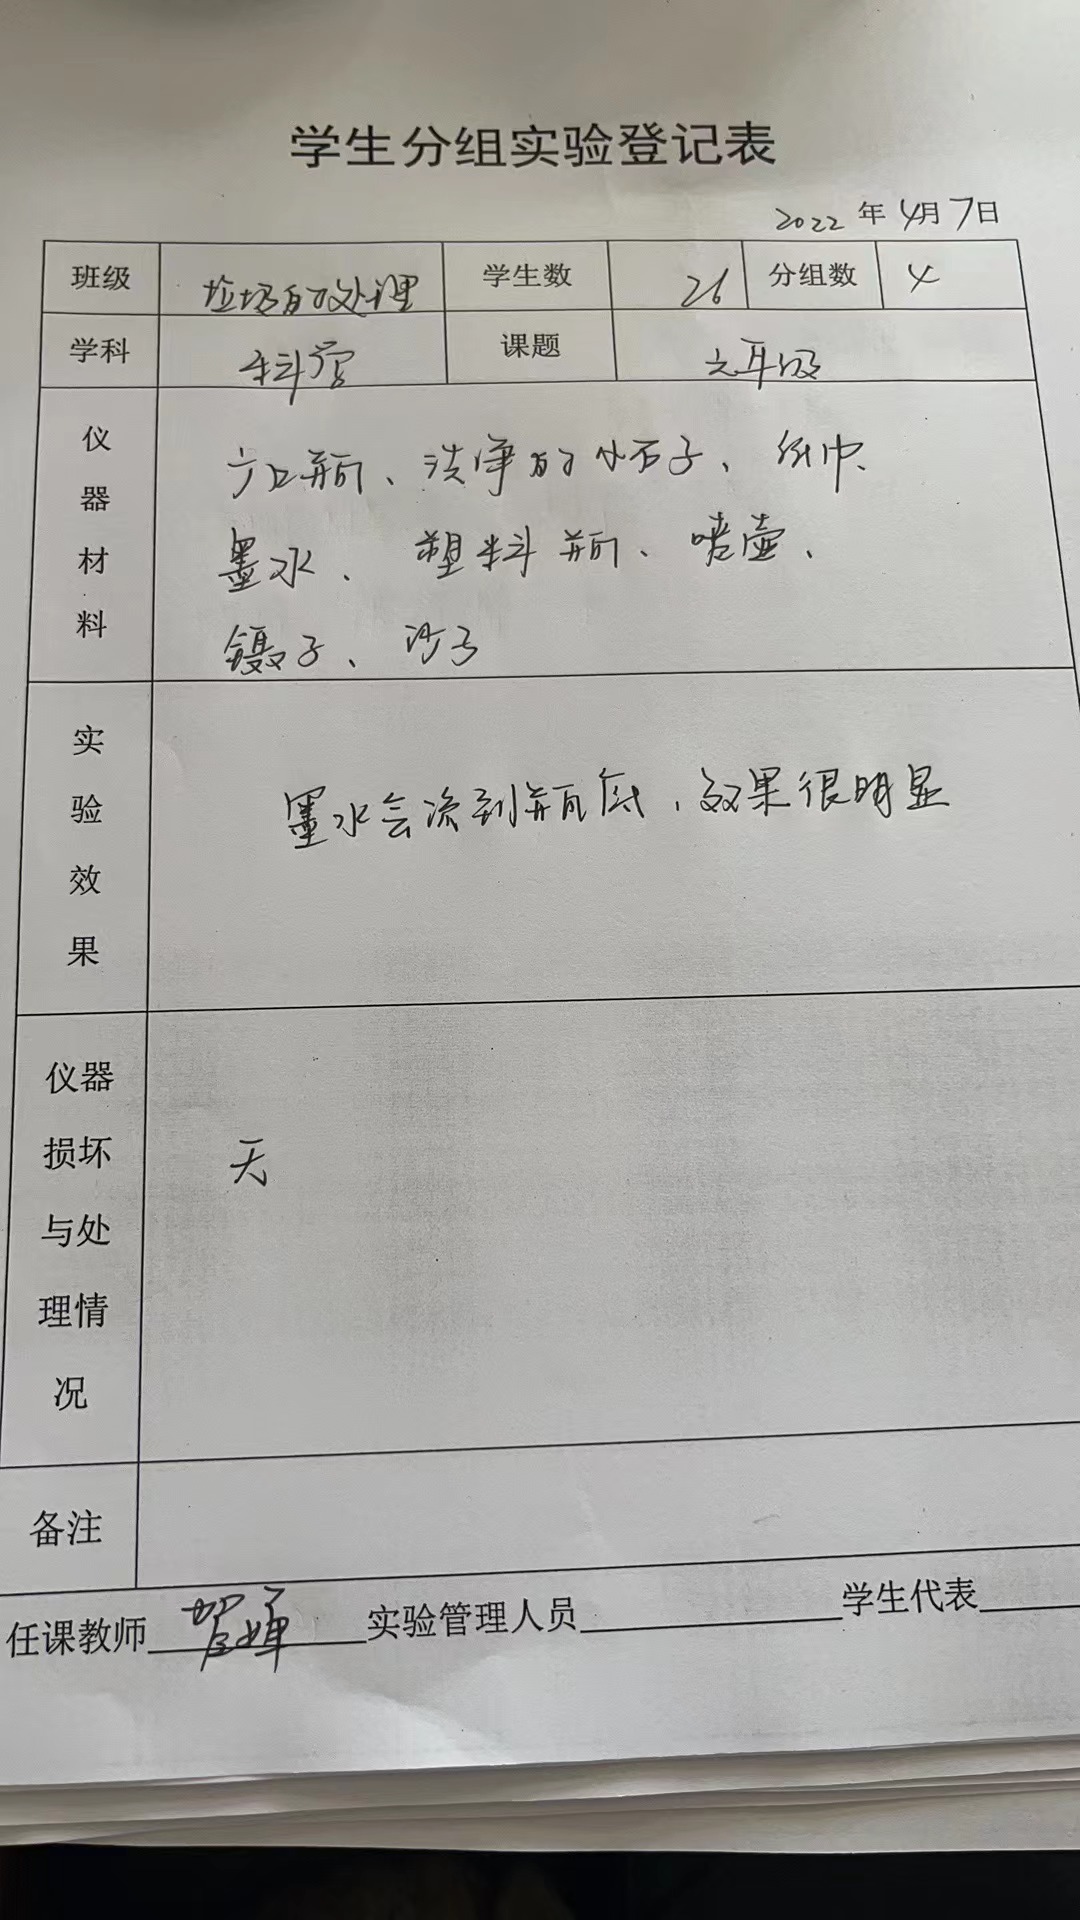 学生分组实验登记表
2022 年 4月 7日
班级 垃圾的处理 学生数 26 分组数 4
学科 科学 课题 六年级
仪器材料 广口瓶、洗净的小石子、纸巾、
墨水、塑料瓶、喷壶、
镊子、沙子
实验效果 墨水会流到瓶底，效果很明显
仪器损坏与处理情况 无
备注
任课教师 贺婵 实验管理人员 学生代表